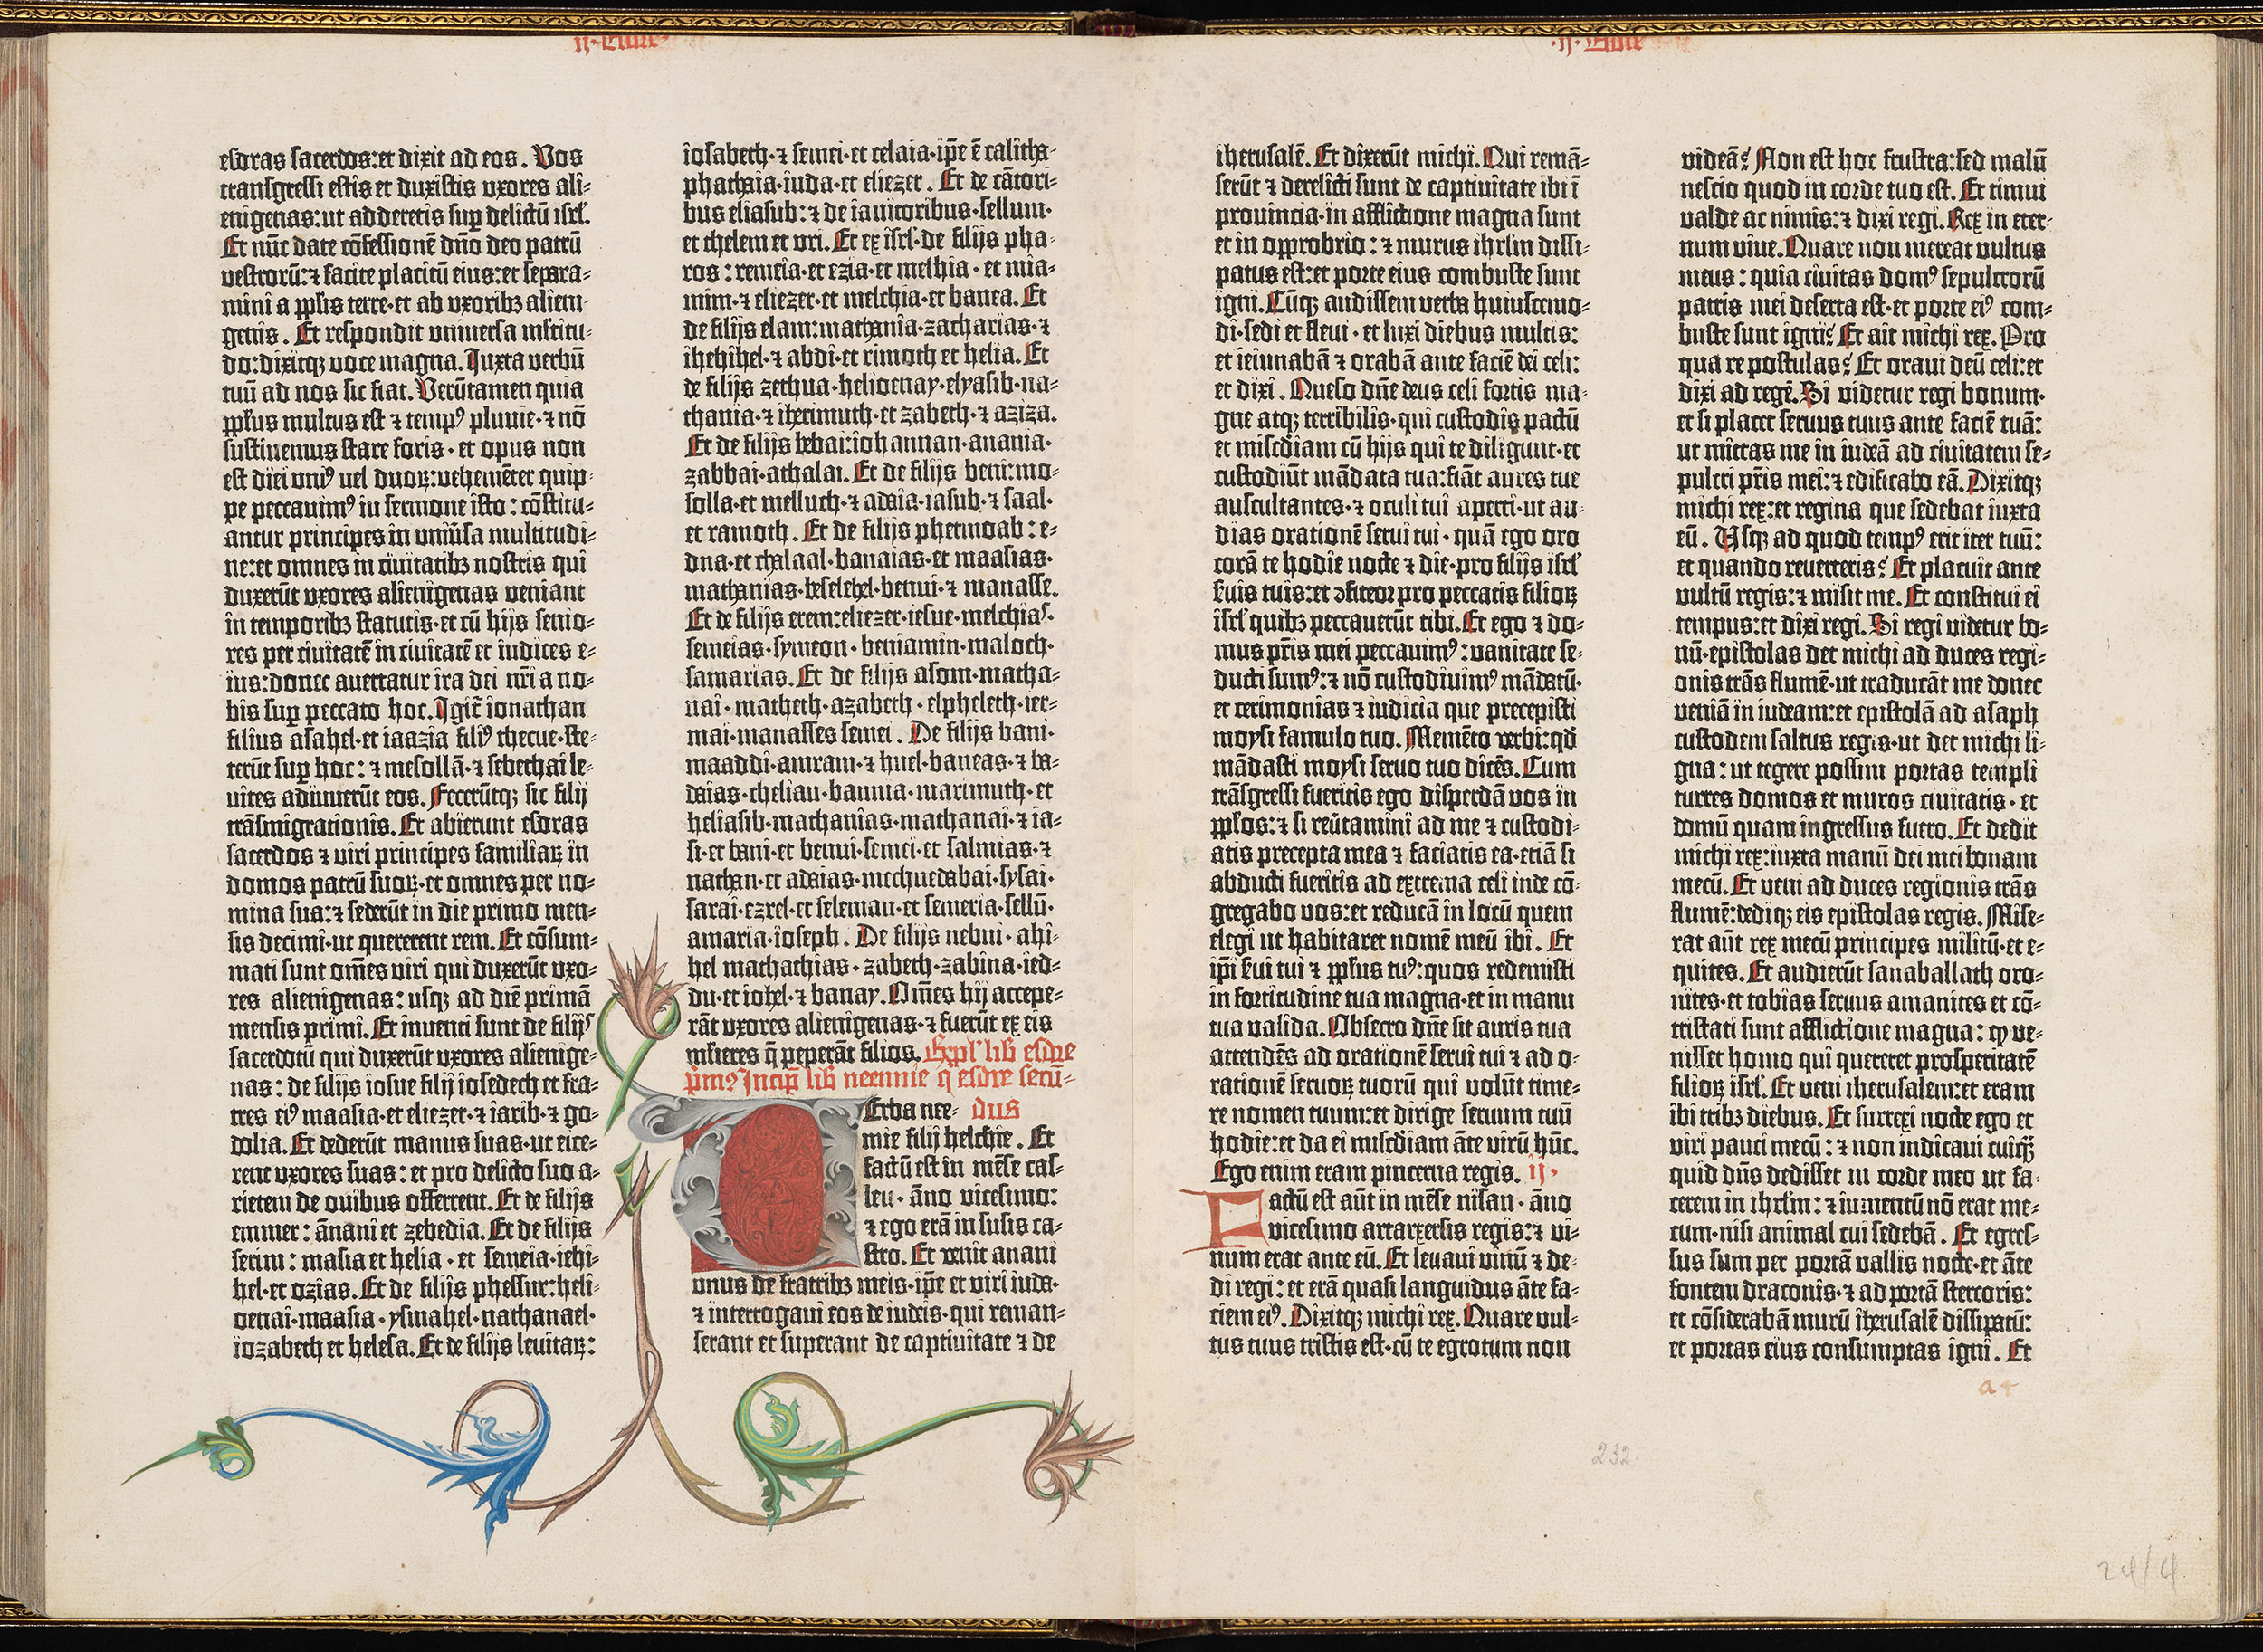 esdras sacerdos:et dixit ad eos. Vos
transgressi estis et duxistis vxores ali=
enigenas:ut adderetis suꝑ delictū isrl'.
Et nūc date cōfessionē dn̄o deo patrū
vestrorū:⁊ facite placitū eius:et separa=
mini a ppl'is terre·et ab vxoribꝫ alieni=
genis. Et respondit vniuersa multitu=
do:dixitqꝫ voce magna. Iuxta verbū
tuū ad nos sic fiat. Verūtamen quia
ppl'us multus est ⁊ tempꝰ pluuie·⁊ nō
sustinemus stare foris·et opus non
est diei vniꝰ uel duoꝝ:vehemēter quip=
pe peccauimꝰ in sermone isto: cōstitu=
antur principes in vniūsa multitudi=
ne:et omnes in ciuitatibꝫ nostris qui
duxerūt vxores alienigenas veniant
in temporibꝫ statutis·et cū hijs senio=
res per ciuitatē in ciuitatē et iudices e=
ius:donec auertatur ira dei nr̄i a no=
bis suꝑ peccato hoc. Igit̄ ionathan
filius asahel·et iaazia filiꝰ thecue·ste=
terūt suꝑ hoc: ⁊ mesollā·⁊ sebethai le=
uites adiuuerūt eos. Fecerūtqꝫ sic filij
trāsmigrationis. Et abierunt esdras
sacerdos ⁊ viri principes familiaꝝ in
domos patrū suoꝝ·et omnes per no=
mina sua:⁊ sederūt in die primo men=
sis decimi·ut quererent rem. Et cōsum=
mati sunt om̄es viri qui duxerūt vxo=
res alienigenas: usqꝫ ad diē primā
mensis primi. Et inuenti sunt de filijs
sacerdotū qui duxerūt vxores alienige=
nas: de filijs iosue filij iosedech et fra=
tres eiꝰ maasia·et eliezer·⁊ iarib·⁊ go=
dolia. Et dederūt manus suas·ut eice=
rent vxores suas: et pro delicto suo a=
rietem de ouibus offerrent. Et de filijs
emmer: ānani et zebedia. Et de filijs
serim: masia et helia·et semeia·iehi=
hel·et ozias. Et de filijs phessur:heli=
oenai·maasia·ysmahel·nathanael·
iozabeth et helesa. Et de filijs leuitaꝝ:
iosabeth·⁊ semei·et celaia·ip̄e ē calitha·
phathaia·iuda·et eliezer. Et de cātori=
bus eliasub:⁊ de ianitoribus·sellum·
et thelem et vri. Et ex isrl'·de filijs pha=
ros: remeia·et ezia·et melhia·et mia=
mim·⁊ eliezer·et melchia·et banea. Et
de filijs elam:mathania·zacharias·⁊
ihehihel·⁊ abdi·et rimoth et helia. Et
de filijs zethua·helioenay·elyasib·na=
thania·⁊ iherimuth·et zabeth·⁊ aziza.
Et de filijs bebai:iohannan·anania·
zabbai·athalai. Et de filijs beni:mo=
solla·et melluch·⁊ adaia·iasub·⁊ saal·
et ramoth. Et de filijs phetmoab: e=
dna·et chalaal·banaias·et maasias·
mathanias·beselehel·bennui·⁊ manasse.
Et de filijs erem:eliezer·iesue·melchias·
semeias·symeon·beniamin·maloch·
samarias. Et de filijs asom·matha=
nai·matheth·azabeth·elpheleth·ier=
mai·manasses semei. De filijs bani·
maaddi·amram·⁊ huel·baneas·⁊ ba=
daias·cheliau·bannia·marimuth·et
heliasib·mathanias·mathanai·⁊ ia=
si·et bani·et bennui·semei·et salmias·⁊
nathan·et adaias·mechnedabai·sysai·
sarai·ezrel·et selemau·et semeria·sellū·
amaria·ioseph. De filijs nebui·ahi=
hel mathathias·zabeth·zabina·ied=
du·et iohel·⁊ banay. Om̄es hij accepe=
rāt vxores alienigenas·⁊ fuerūt ex eis
ml'ieres q̄ pepererāt filios. Expl' lib̄ esdre
pm̄ꝰ Incip̄ lib̄ neemie q̄ esdre secū=
Erba nee= dus
mie filij helchie. Et
factū est in mēse cas=
leu·āno vicesimo:
⁊ ego erā in susis ca=
stro. Et venit anani
vnus de fratribꝫ meis·ip̄e et viri iuda·
⁊ interrogaui eos de iudeis·qui reman=
serant et superant de captiuitate ⁊ de
iherusalē. Et dixerūt michi. Qui remā=
serūt ⁊ derelicti sunt de captiuitate ibi ī
prouincia·in afflictione magna sunt
et in opprobrio: ⁊ murus ihrl'm dissi=
patus est:et porte eius combuste sunt
igni. Cūqꝫ audissem verba huiuscemo=
di·sedi et fleui·et luxi diebus multis:
et ieiunabā ⁊ orabā ante faciē dei celi:
et dixi. Queso dn̄e deus celi fortis ma=
gne atqꝫ terribilis·qui custodis pactū
et mis̄cdiam cū hijs qui te diligunt·et
custodiūt mādata tua:fiāt aures tue
auscultantes·⁊ oculi tui aperti·ut au=
dias orationē serui tui·quā ego oro
corā te hodie nocte ⁊ die·pro filijs isrl'
s̄uis tuis:et ꝯfiteor pro peccatis filioꝝ
isrl' quibꝫ peccauerūt tibi. Et ego ⁊ do=
mus pr̄is mei peccauimꝰ: vanitate se=
ducti sumꝰ:⁊ nō custodiuimꝰ mādatū·
et cerimonias ⁊ iudicia que precepisti
moysi famulo tuo. Memēto verbi:qd̄
mādasti moysi seruo tuo dicēs. Cum
trāsgressi fueritis ego disperdā vos in
ppl'os:⁊ si reūtamini ad me ⁊ custodi=
atis precepta mea ⁊ faciatis ea·etiā si
abducti fueritis ad extrema celi inde cō=
gregabo vos:et reducā in locū quem
elegi ut habitaret nomē meū ibi. Et
ip̄i s̄ui tui ⁊ ppl'us tuꝰ:quos redemisti
in fortitudine tua magna·et in manu
tua valida. Obsecro dn̄e sit auris tua
attendēs ad orationē serui tui ⁊ ad o=
rationē seruoꝝ tuorū qui volūt time=
re nomen tuum:et dirige seruum tuū
hodie:et da ei mis̄cdiam āte virū hūc.
Ego enim eram pincerna regis. ij·
Factū est aūt in mēse nisan·āno
vicesimo artarxersis regis:⁊ vi=
num erat ante eū. Et leuaui vinū ⁊ de=
di regi: et erā quasi languidus āte fa=
ciem eiꝰ. Dixitqꝫ michi rex. Quare vul=
tus tuus tristis est·cū te egrotum non
videā? Non est hoc frustra:sed malū
nescio quod in corde tuo est. Et timui
valde ac nimis:⁊ dixi regi. Rex in eter=
num viue. Quare non mereat vultus
meus: quia ciuitas domꝰ sepulcrorū
patris mei deserta est·et porte eiꝰ com=
buste sunt igni? Et ait michi rex. Pro
qua re postulas? Et oraui deū celi:et
dixi ad regē. Si videtur regi bonum·
et si placet seruus tuus ante faciē tuā:
ut mittas me in iudeā ad ciuitatem se=
pulcri pr̄is mei:⁊ edificabo eā. Dixitqꝫ
michi rex:et regina que sedebat iuxta
eū. Usqꝫ ad quod tempꝰ erit iter tuū:
et quando reuerteris? Et placuit ante
vultū regis:⁊ misit me. Et constitui ei
tempus:et dixi regi. Si regi videtur bo=
nū·epistolas det michi ad duces regi=
onis trās flumē·ut traducāt me donec
veniā in iudeam:et epistolā ad asaph
custodem saltus regis·ut det michi li=
gna: ut tegere possim portas templi
turres domos et muros ciuitatis·et
domū quam ingressus fuero. Et dedit
michi rex:iuxta manū dei mei bonam
mecū. Et veni ad duces regionis trās
flumē:dediqꝫ eis epistolas regis. Mise=
rat aūt rex mecū principes militū·et e=
quites. Et audierūt sanaballath oro=
nites·et tobias seruus amanites et cō=
tristati sunt afflictione magna: ꝙ ve=
nisset homo qui quereret prosperitatē
filioꝝ isrl'. Et veni iherusalem:et eram
ibi tribꝫ diebus. Et surrexi nocte ego et
viri pauci mecū: ⁊ non indicaui cuiqꝫ̄
quid dn̄s dedisset in corde meo ut fa=
cerem in ihrl'm: ⁊ iumentū nō erat me=
cum·nisi animal cui sedebā. Et egres=
sus sum per portā vallis nocte·et āte
fontem draconis·⁊ ad portā stercoris:
et cōsiderabā murū iherusalē dissipatū:
et portas eius consumptas igni. Et
232
24/4